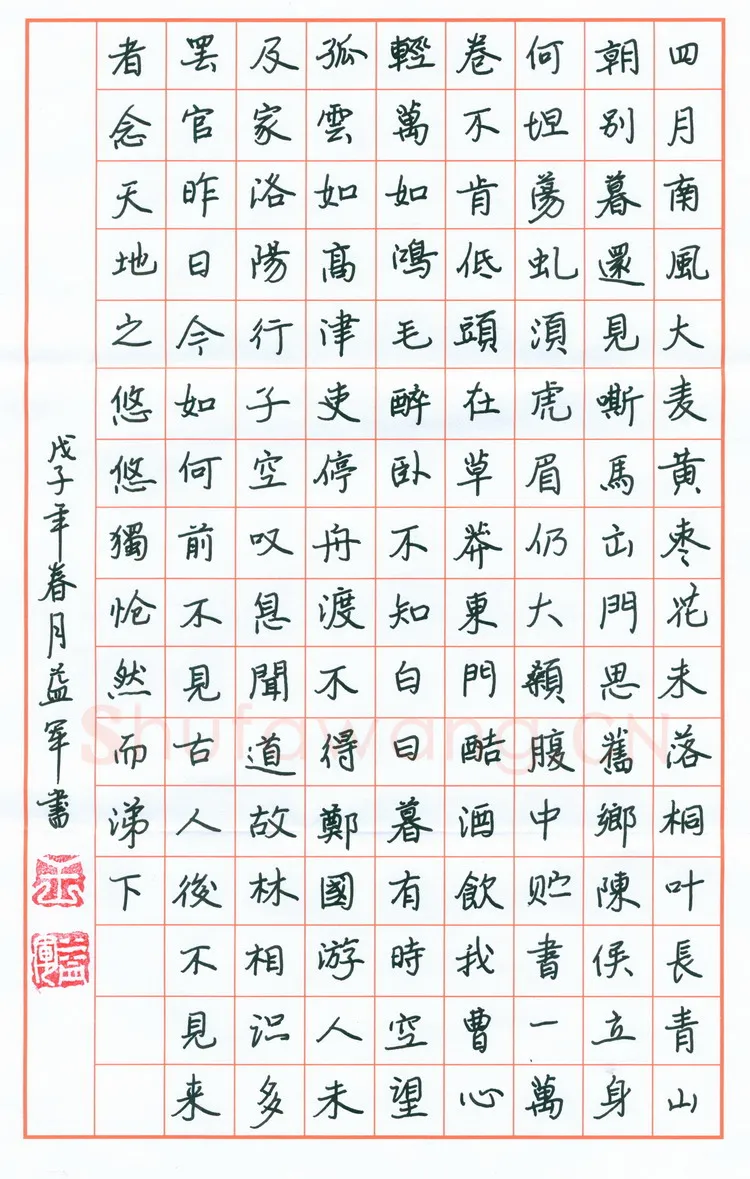 四月南風大麦黄枣花未落桐叶長青山
朝别暮還見嘶馬出門思舊鄉陳侯立身
何坦蕩虬須虎眉仍大顙腹中贮書一萬
卷不肯低頭在草莽東門酤酒飲我曹心
輕萬如如鴻毛醉卧不知白日暮有時空望
孤雲如高津吏停舟渡不得鄭國游人未
及家洛陽行子空叹息聞道故林相识多
罢官昨日今如何前不見古人後不見来
者念天地之悠悠獨怆然而涕下
戊子年春月益军書
Shufawang.CN